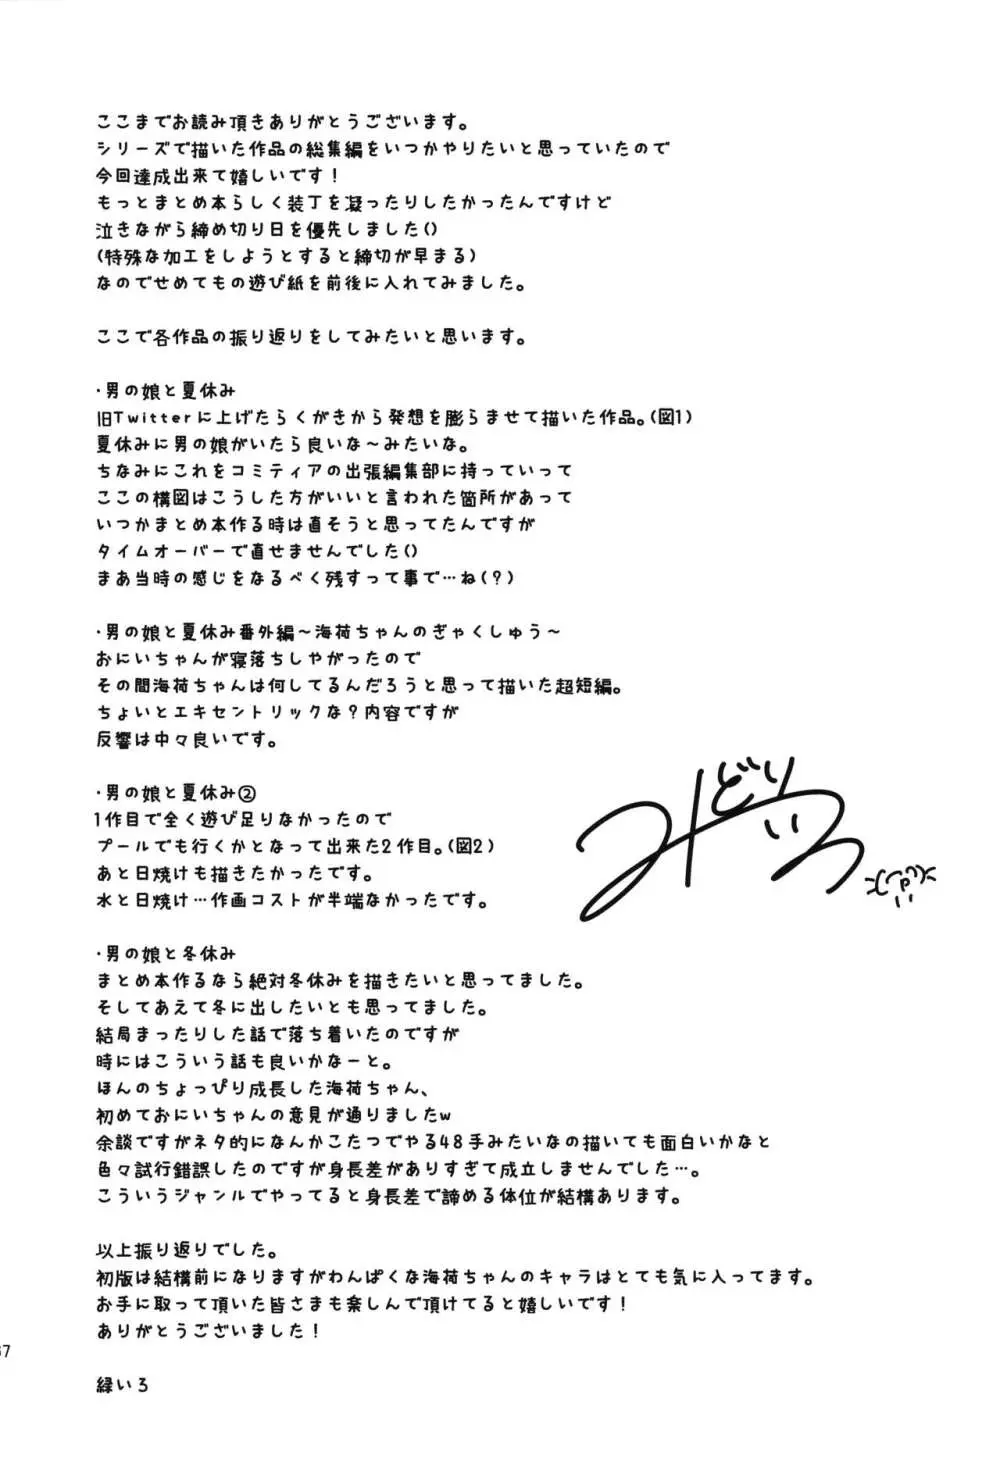 ここまでお読み頂きありがとうございます。
シリーズで描いた作品の総集編をいつかやりたいと思っていたので
今回達成出来て嬉しいです！
もっとまとめ本らしく装丁を凝ったりしたかったんですけど
泣きながら締め切り日を優先しました()
(特殊な加工をしようとすると締切が早まる)
なのでせめてもの遊び紙を前後に入れてみました。
ここで各作品の振り返りをしてみたいと思います。
・男の娘と夏休み
旧Twitterに上げたらくがきから発想を膨らませて描いた作品。(図1)
夏休みに男の娘がいたら良いな～みたいな。
ちなみにこれをコミティアの出張編集部に持っていって
ここの構図はこうした方がいいと言われた箇所があって
いつかまとめ本作る時は直そうと思ってたんですが
タイムオーバーで直せませんでした()
まあ当時の感じをなるべく残すって事で…ね(？)
・男の娘と夏休み番外編～海荷ちゃんのぎゃくしゅう～
おにいちゃんが寝落ちしやがったので
その間海荷ちゃんは何してるんだろうと思って描いた超短編。
ちょいとエキセントリックな？内容ですが
反響は中々良いです。
・男の娘と夏休み②
1作目で全く遊び足りなかったので
プールでも行くかとなって出来た2作目。(図2)
あと日焼けも描きたかったです。
水と日焼け…作画コストが半端なかったです。
みどりいろ
・男の娘と冬休み
まとめ本作るなら絶対冬休みを描きたいと思ってました。
そしてあえて冬に出したいとも思ってました。
結局まったりした話で落ち着いたのですが
時にはこういう話も良いかなーと。
ほんのちょっぴり成長した海荷ちゃん、
初めておにいちゃんの意見が通りましたw
余談ですがネタ的になんかこたつでやる48手みたいなの描いても面白いかなと
色々試行錯誤したのですが身長差がありすぎて成立しませんでした…。
こういうジャンルでやってると身長差で諦める体位が結構あります。
以上振り返りでした。
初版は結構前になりますがわんぱくな海荷ちゃんのキャラはとても気に入ってます。
お手に取って頂いた皆さまも楽しんで頂けてると嬉しいです！
ありがとうございました！
緑いろ